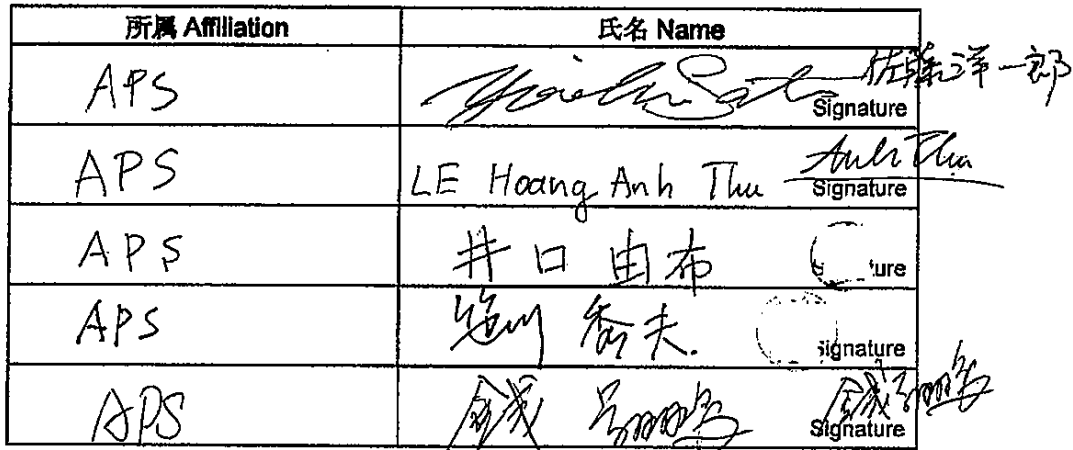 所属 Affiliation 氏名 Name
APS Yoichi Sato 佐藤洋一郎
Signature
APS LE Hoang Anh Thu Anh Thu
Signature
APS 井口 由布
ure
APS 香夫
Signature
APS 銭
Signature